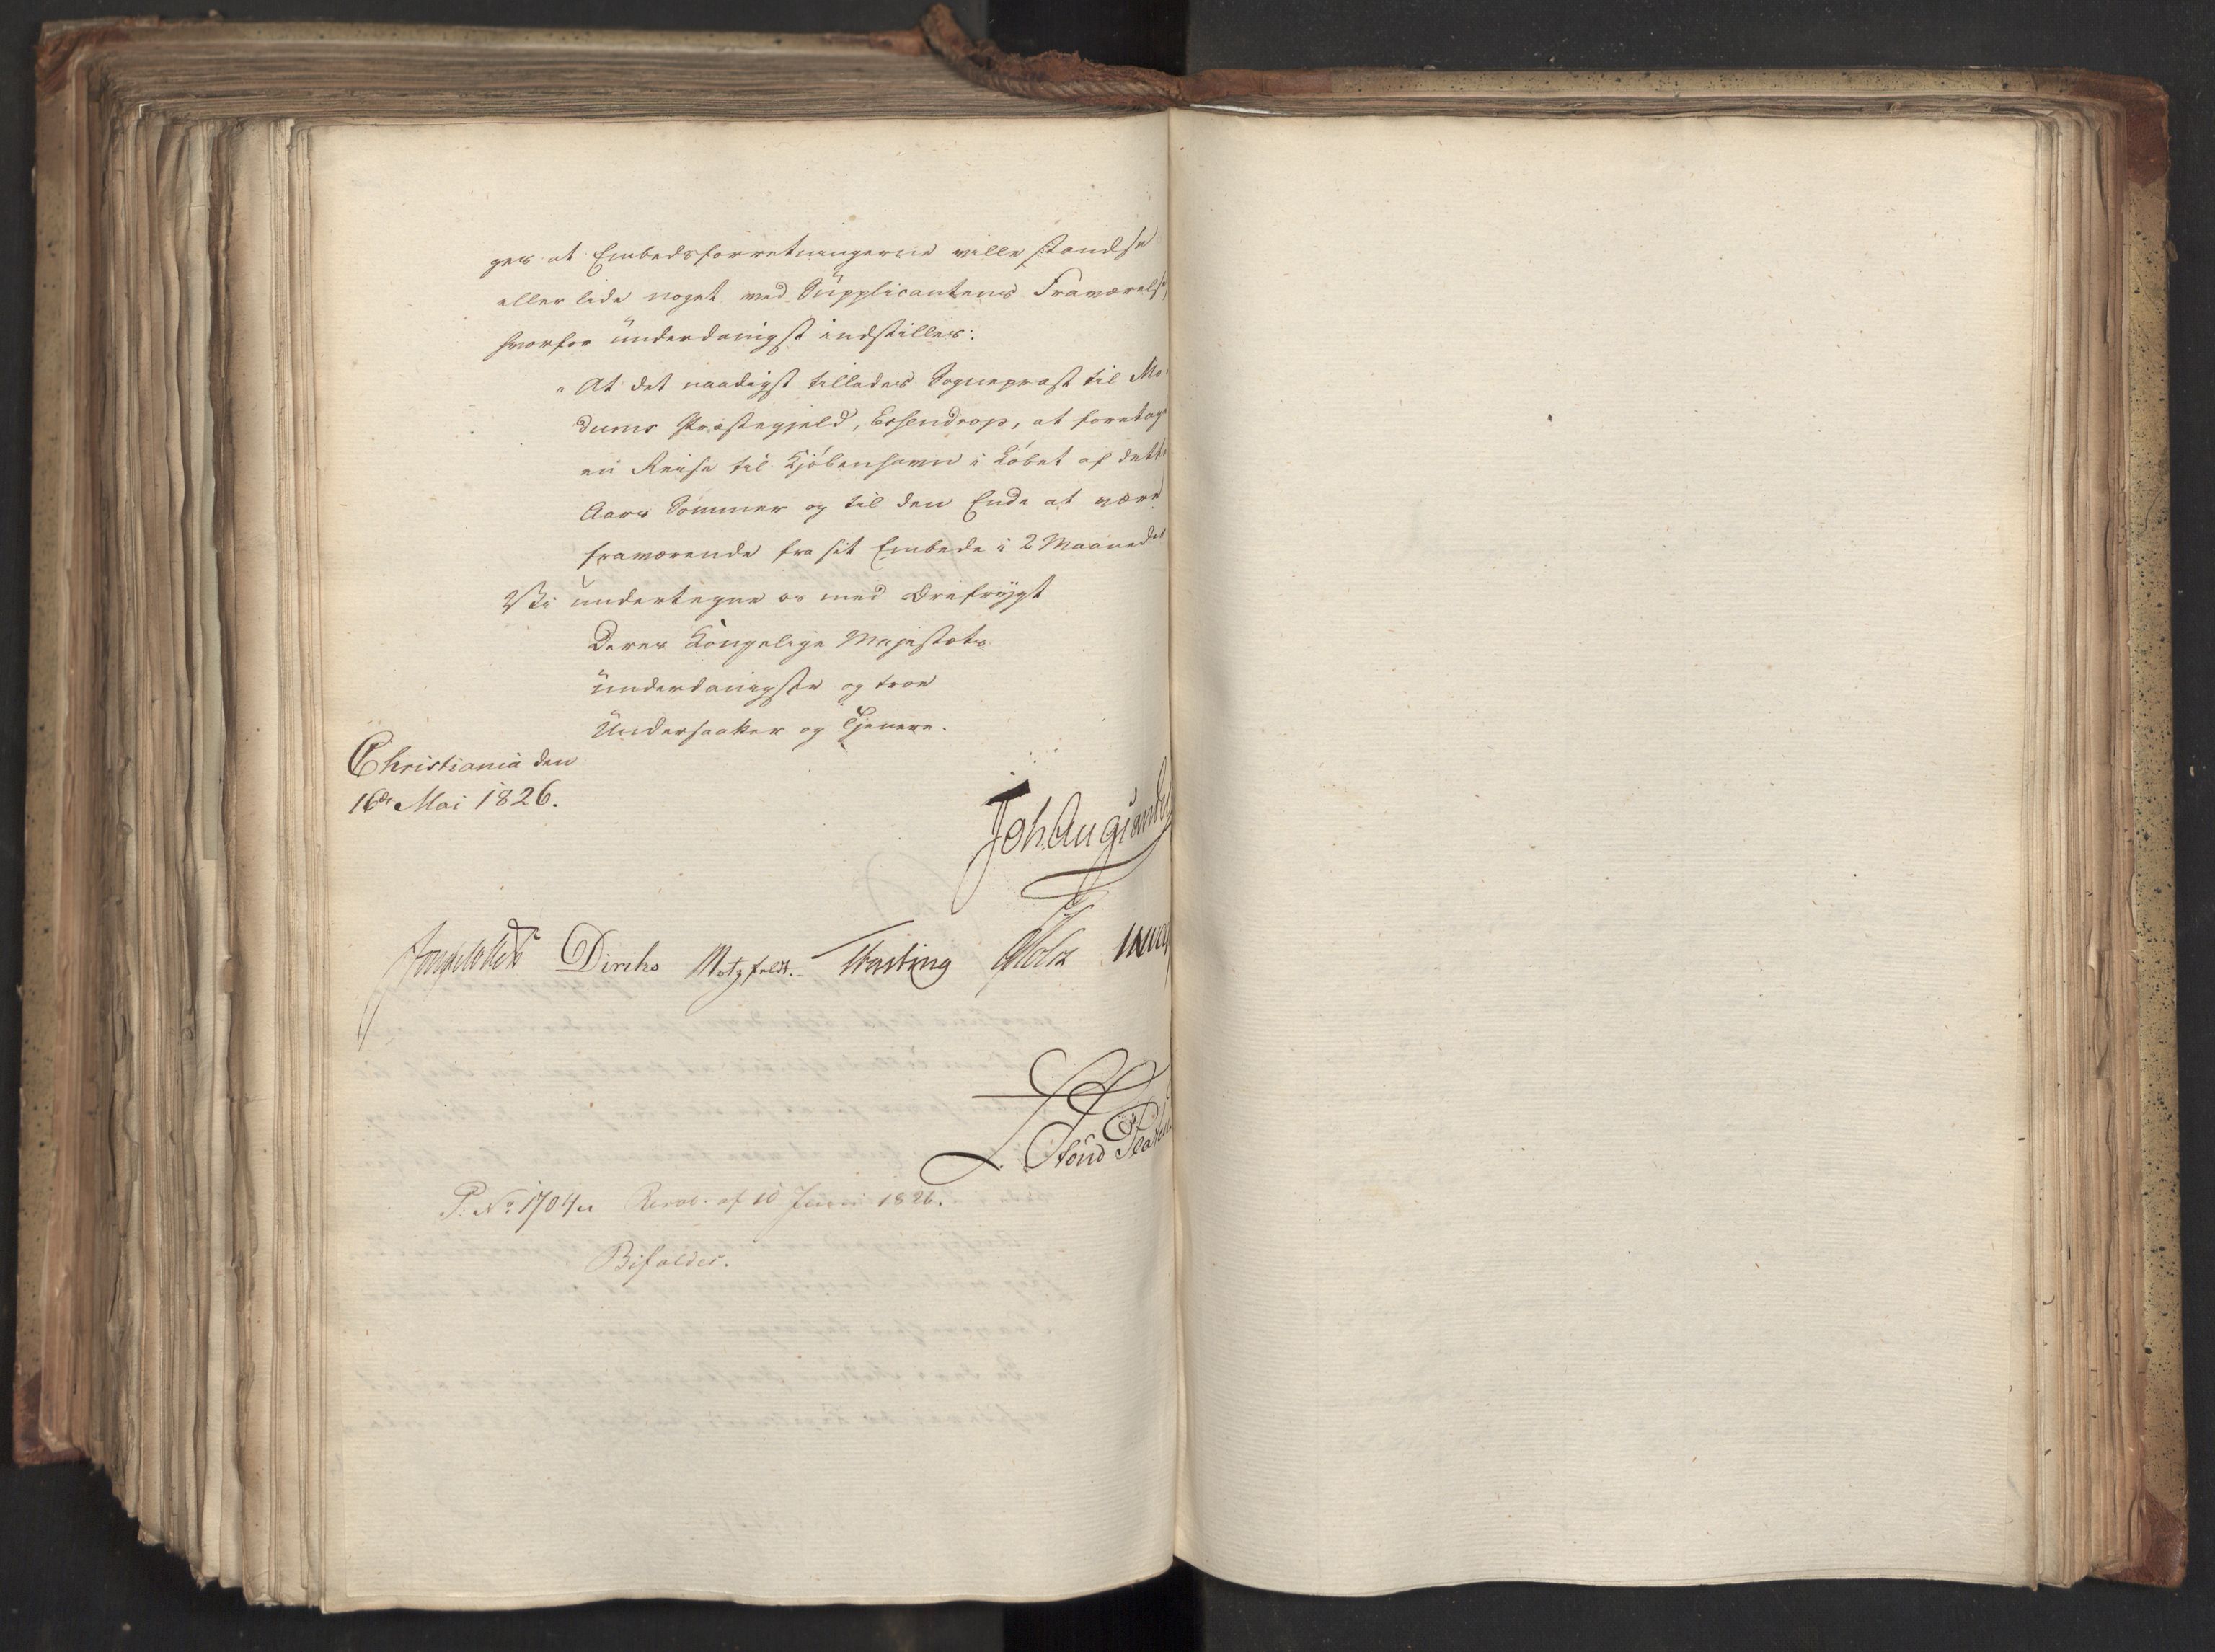 ges at Embedsforretningerne ville standse
eller lide noget ved Supplicantens Fraværelse,
hvorfor underdanigst indstilles:
"At det naadigst tillades Sognepræst til Mo-
dums Præstegjeld, Essendrop, at foretage
en Reise til Kjöbenhavn i Löbet af dette
Aars Sommer og til den Ende at være
fraværende fra sit Embede i 2 Maaneder
Vi undertegne os med Ærefrygt
Deres Kongelige Majestæts
underdanigste og troe
Undersaatter og Tjenere.
Christiania den
16de Mai 1826.
Joh. Aug. Sandels
Diriks Motzfeldt. Fasting Holst
P. No. 1704/u Resol. af 10 Juni 1826.
Bifaldes.